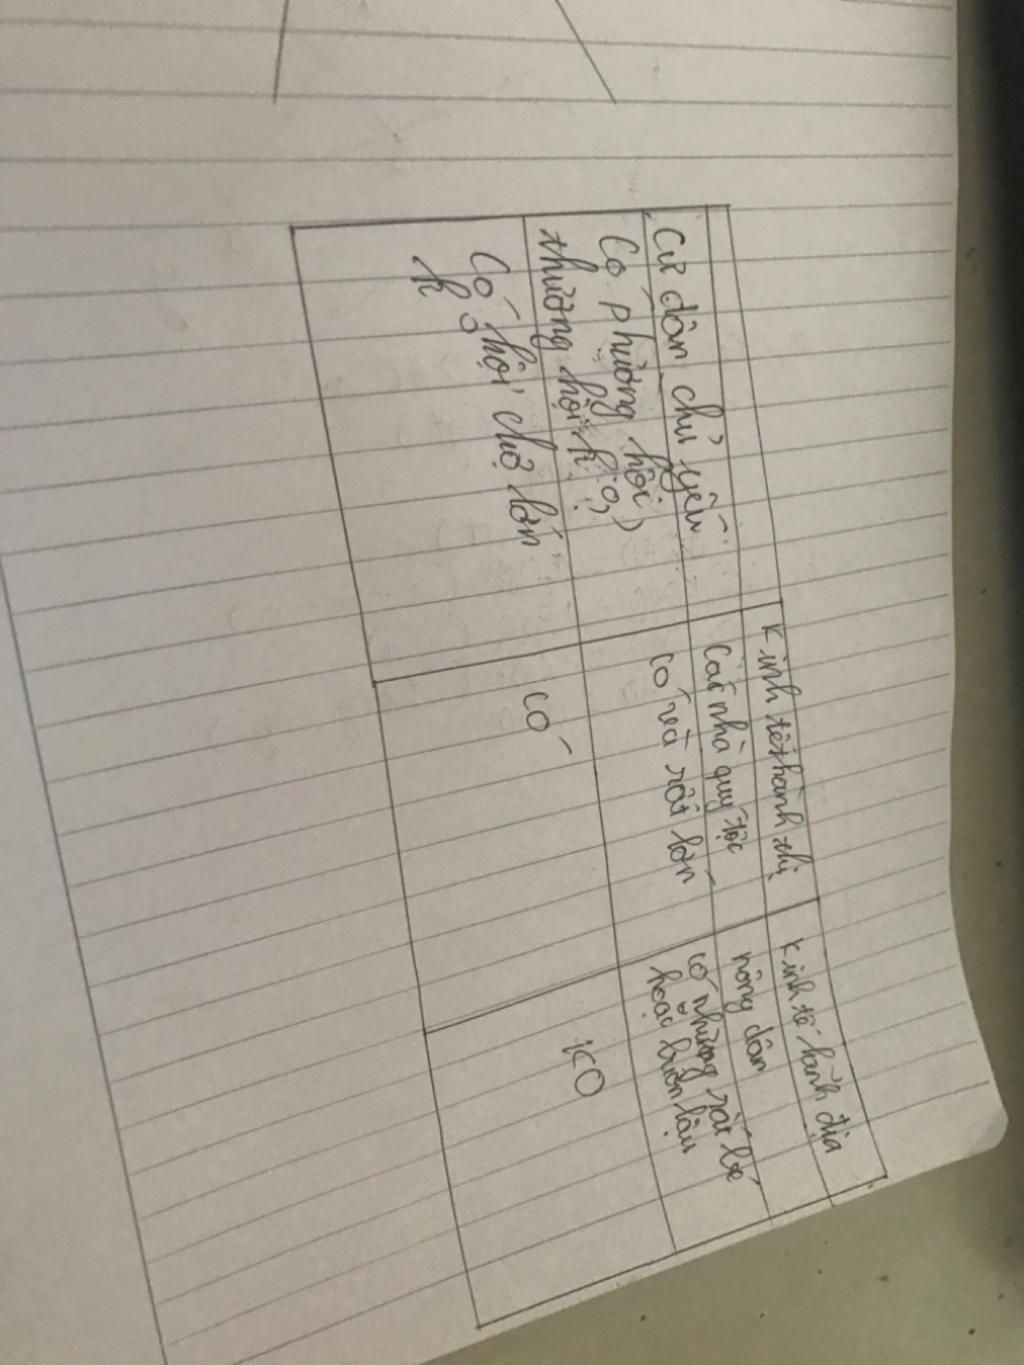 Kinh tế thành thị
Kinh tế lãnh địa
Cư dân chủ yếu
Các nhà quý tộc
nông dân
Có phường hội,
thương hội k o?
có và rất lớn
có nhưng rất bé
hoặc buôn lậu
Có hội chợ lớn
k o
CÓ
KO